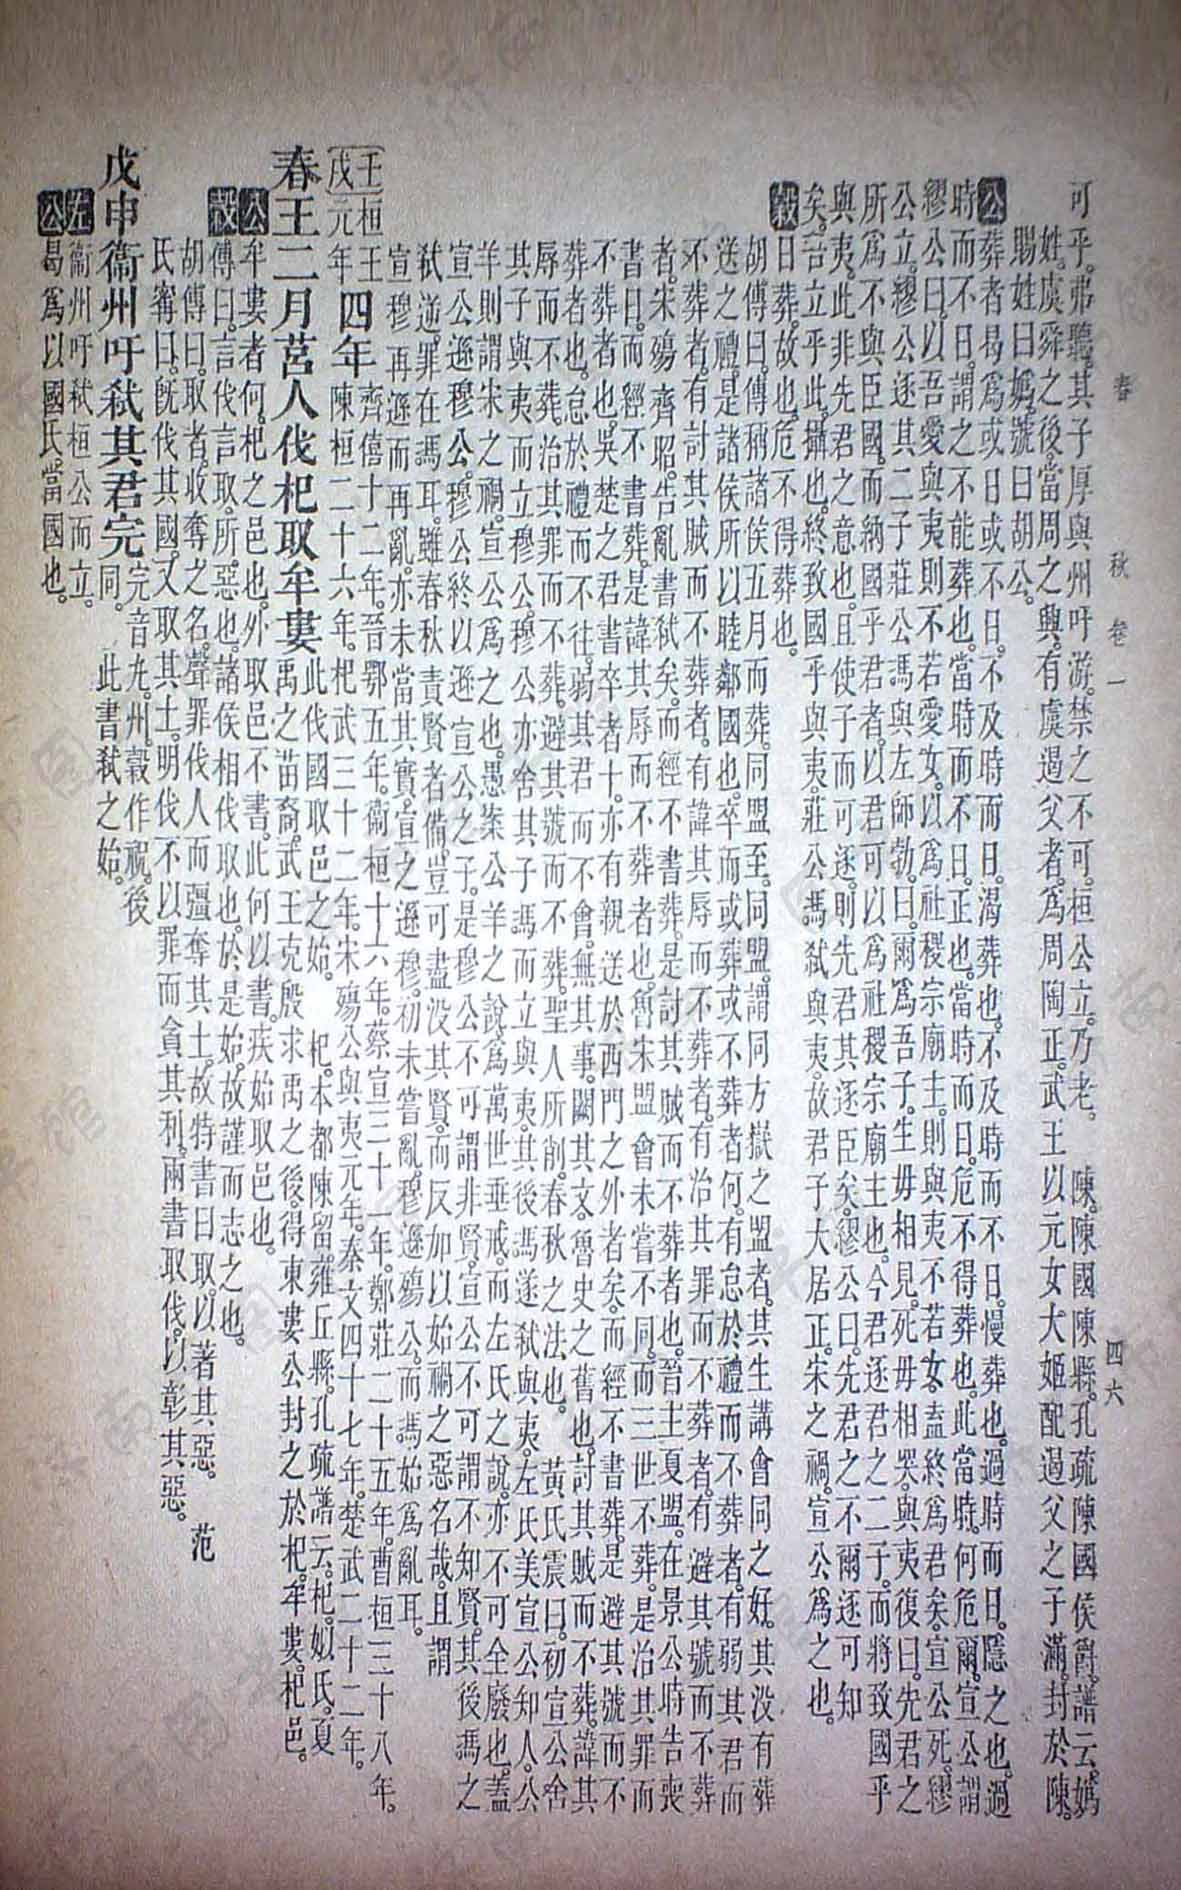 春秋 卷一 四六
可乎。弗聽。其子厚與州吁游。禁之不可。桓公立。乃老。 陳。陳國陳縣。孔疏陳國侯爵。譜云。嬀
姓。虞舜之後。當周之興。有虞遏父者。爲周陶正。武王以元女大姬配遏父之子滿。封於陳。
賜姓曰嬀。號曰胡公。
公 葬者曷爲或日或不日。不及時而日。渴葬也。不及時而不日。慢葬也。過時而日。隱之也。過
時而不日。謂之不能葬也。當時而不日。正也。當時而日。危不得葬也。此當時。何危爾。宣公謂
繆公曰。以吾愛與夷。則不若愛女。以爲社稷宗廟主。則與夷不若女。盍終爲君矣。宣公死。繆
公立。繆公逐其二子莊公馮。與左師勃。曰。爾爲吾子。生毋相見。死毋相哭。與夷復曰。先君之
所爲不與臣國。而納國乎君者。以君可以爲社稷宗廟主也。今君逐君之二子。而將致國乎
與夷。此非先君之意也。且使子而可逐。則先君其逐臣矣。繆公曰。先君之不爾逐可知
矣。吾立乎此。攝也。終致國乎與夷。莊公馮弒與夷。故君子大居正。宋之禍。宣公爲之也。
穀 日葬。故也。危不得葬也。
胡傳曰。傳稱諸侯五月而葬。同盟至。同盟。謂同方嶽之盟者。其生講會同之好。其没有葬
送之禮。是諸侯所以睦鄰國也。卒而或葬或不葬者何。有怠於禮而不葬者。有弱其君而
不葬者。有討其賊而不葬者。有諱其辱而不葬者。有治其罪而不葬者。有避其號而不葬
者。宋殤齊昭。告亂書弒矣。而經不書葬。是討其賊而不葬者也。晉主夏盟。在景公時告喪
書日。而經不書葬。是諱其辱而不葬者也。魯宋盟會未嘗不同。而三世不葬。是治其罪而
不葬者也。吳楚之君書卒者十。亦有親送於西門之外者矣。而經不書葬。是避其號而不
葬者也。怠於禮而不往。弱其君而不會。無其事。闕其文。魯史之舊也。討其賊而不葬。諱其
辱而不葬。治其罪而不葬。避其號而不葬。聖人所削。春秋之法也。 黃氏震曰。初宣公舍
其子與夷而立穆公。穆公亦舍其子馮而立與夷。其後馮遂弒與夷。左氏美宣公知人。公
羊則謂宋之禍。宣公爲之也。愚案公羊之說。爲萬世垂戒。而左氏之說。亦不可全廢也。蓋
宣公遜穆公。穆公終以遜宣公之子。是穆公不可謂非賢。宣公不可謂不知賢。其後馮之
弒逆。罪在馮耳。雖春秋責賢者備。豈可盡没其賢。而反加以始禍之惡名哉。且謂
宣穆再遜而再亂。亦未當其實。宣之遜穆。初未嘗亂。穆遜殤公。而馮始爲亂耳。
壬戌 桓王元年 四年 齊僖十二年。晉鄂五年。衞桓十六年。蔡宣三十一年。鄭莊二十五年。曹桓三十八年。
陳桓二十六年。杞武三十二年。宋殤公與夷元年。秦文四十七年。楚武二十二年。
春王二月莒人伐杞取牟婁 此伐國取邑之始。 杞。本都陳留雍丘縣。孔疏譜云。杞。姒氏。夏
禹之苗裔。武王克殷求禹之後。得東婁公封之於杞。牟婁。杞邑。
公 牟婁者何。杞之邑也。外取邑不書。此何以書。疾始取邑也。
穀 傳曰。言伐言取。所惡也。諸侯相伐取也。於是始。故謹而志之也。
胡傳曰。取者。收奪之名。聲罪伐人而彊奪其土。故特書曰取。以著其惡。 范
氏甯曰。旣伐其國。又取其土。明伐不以罪而貪其利。兩書取伐。以彰其惡。
戊申衞州吁弒其君完 完音丸。州。穀作祝。後
同。 此書弒之始。
左 衞州吁弒桓公而立。
公 曷爲以國氏。當國也。